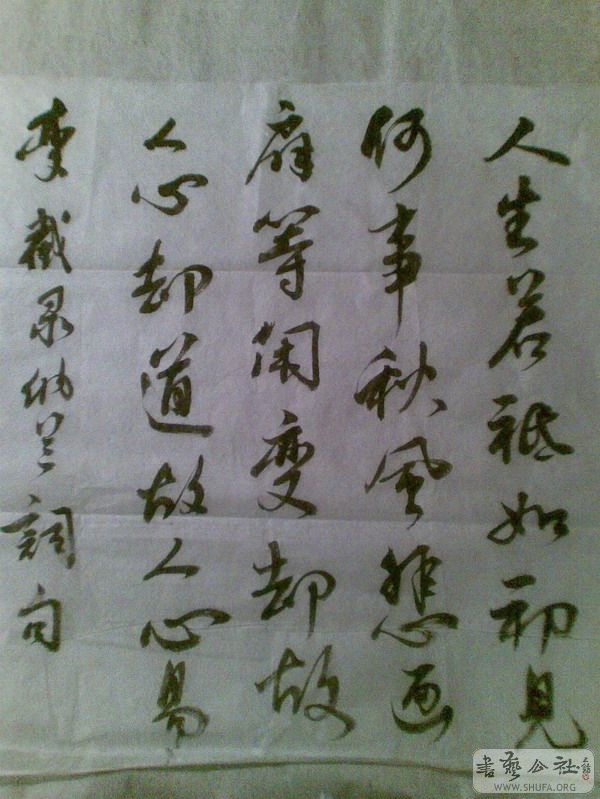 人生若祗如初見
何事秋风悲画
扇等闲变却故
人心却道故人心易
变截录纳兰词句
書藝公社
WWW.SHUFA.ORG